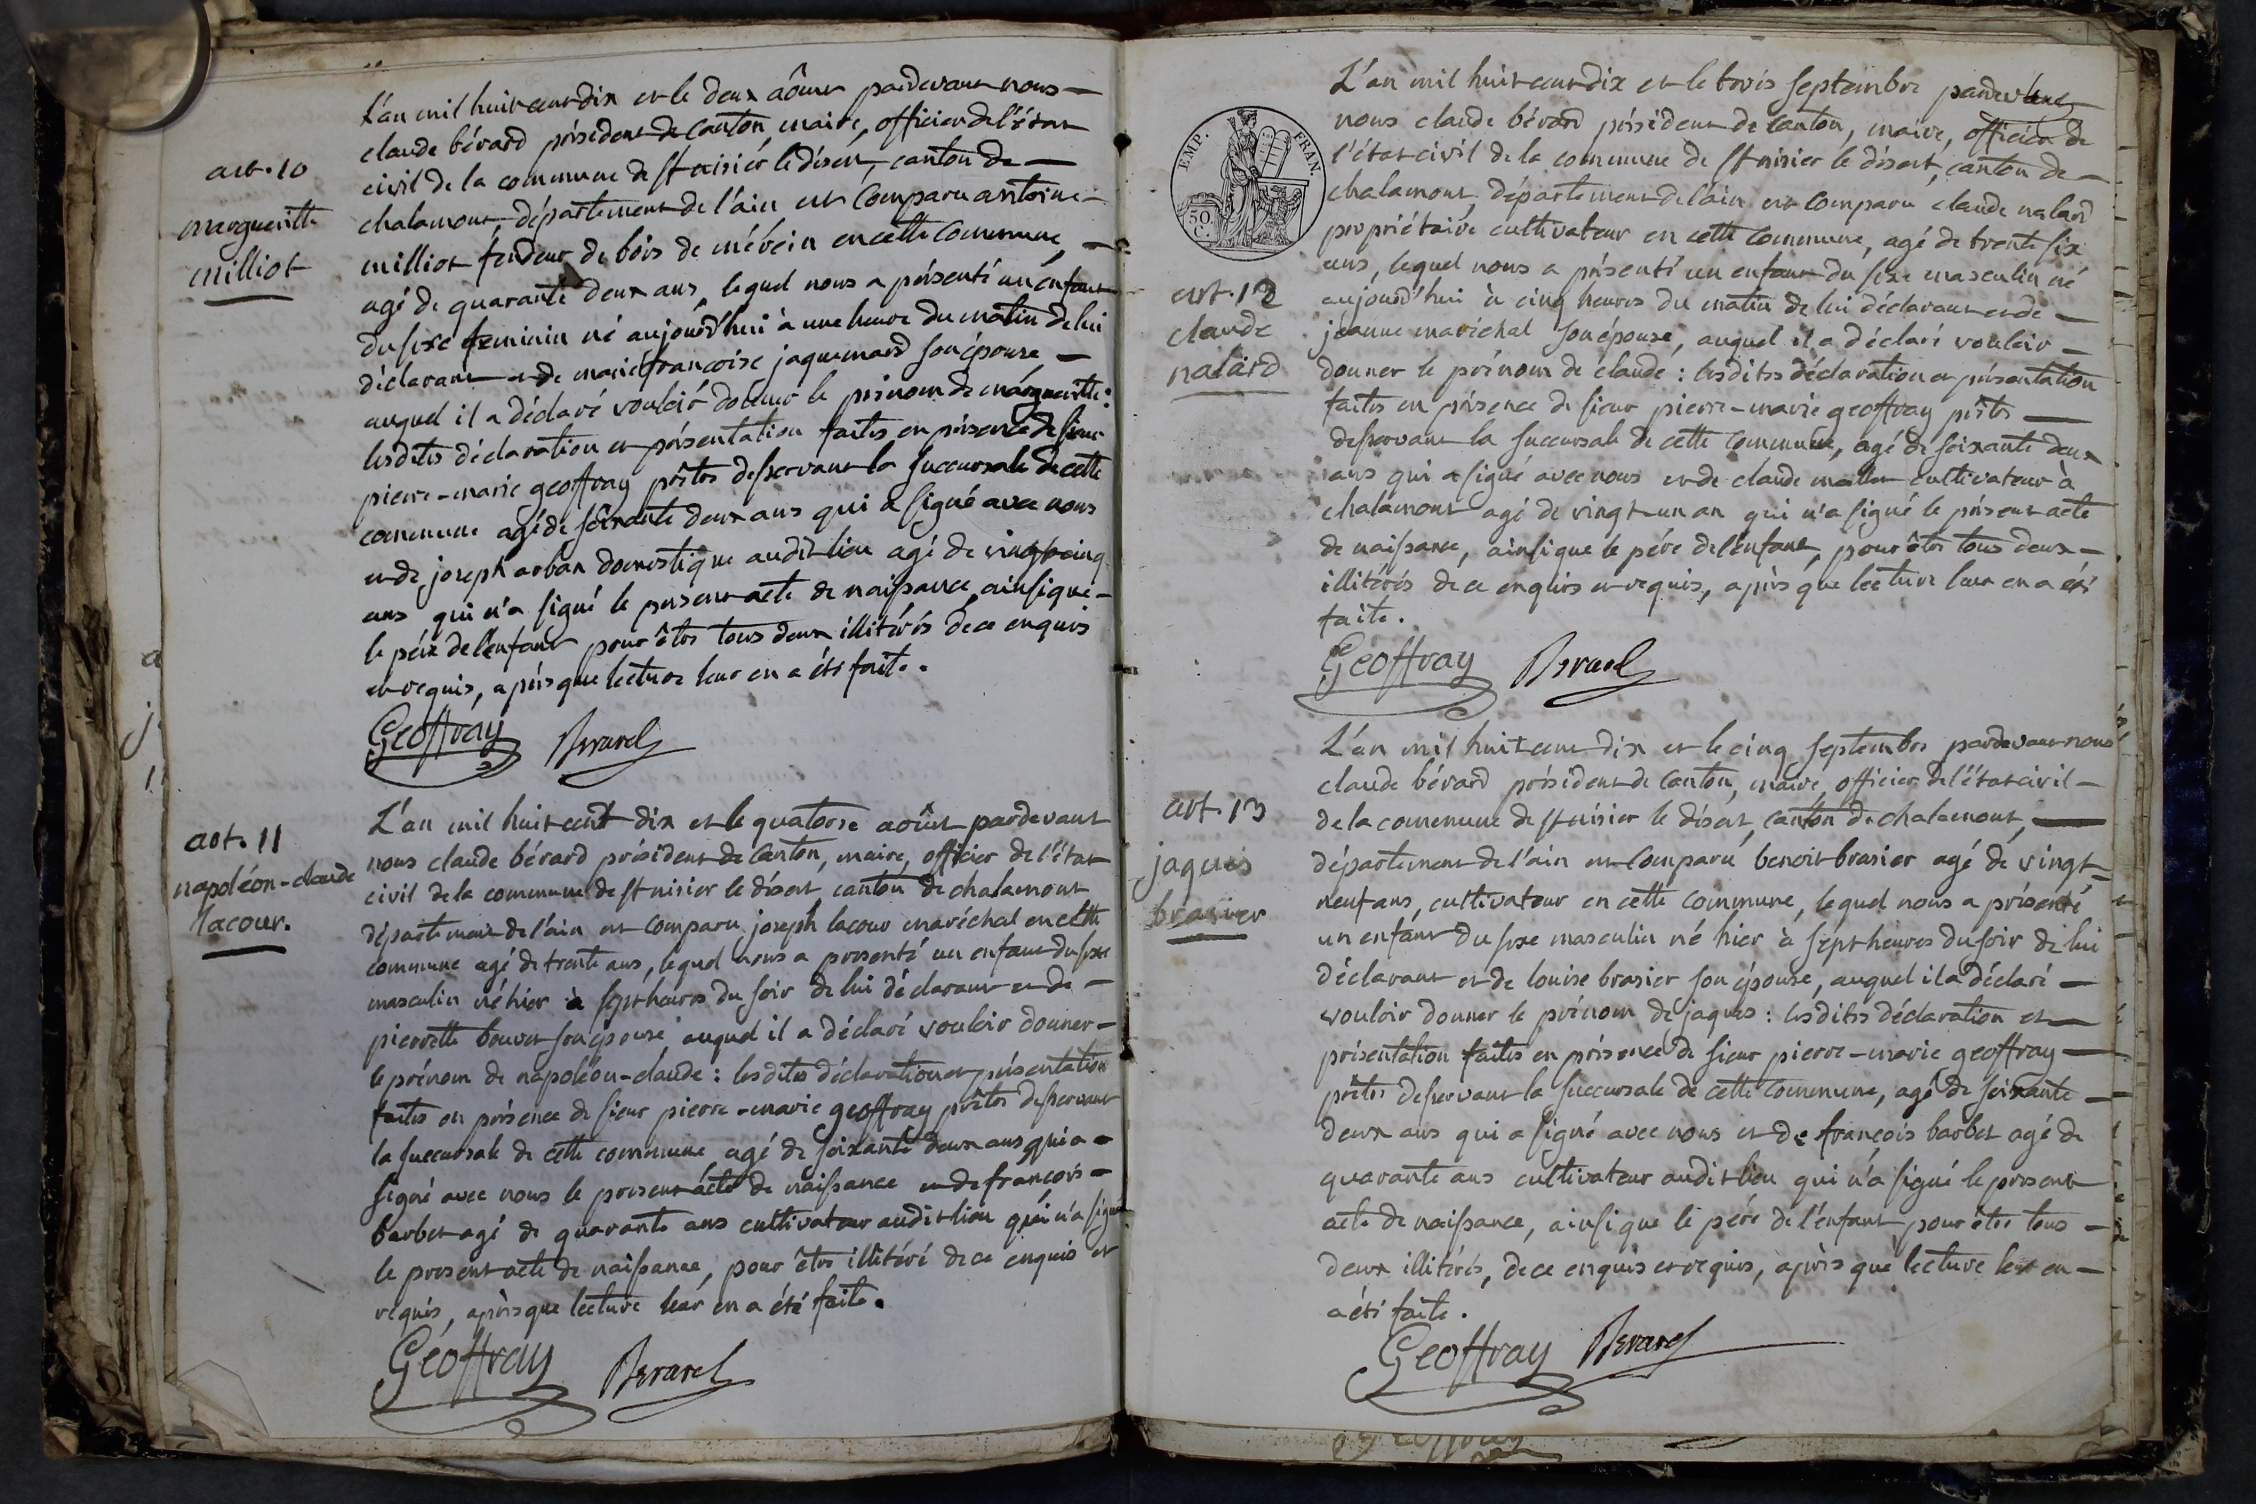 art. 10
margueritte
milliot
L'an mil huit cent dix et le deux aôut pardevant nous
claude bérard président de canton, maire, officier de l'état
civil de la commune de St nisier le désert, canton de
chalamont, département de l'ain est comparu antoine
milliot fendeur de bois de mérein en cette commune,
agé de quarante deux ans, lequel nous a présenté un enfant
du sexe feminin né aujourd'hui à une heure du matin de lui
déclarant et de marie françoise jaquemard son épouse
auquel il a déclaré vouloir donner le prénom de margueritte:
lesdites déclaration et présentation faites en présence de sieur
pierre-marie geoffray prêtre desservant la succursale de cette
commune agé de soixante deux ans qui a signé avec nous
et de joseph arban domestique audit lieu agé de vingt cinq
ans qui n'a signé le present acte de naissance ainsi que
le père de l'enfant pour être tous deux illitérés de ce enquis
et requis, après que lecture leur en a été faite.
Geoffray Berard
art. 11
napoléon-claude
lacour.
L'an mil huit cent dix et le quatorse août pardevant
nous claude bérard président de canton, maire, officier de l'état
civil de la commune de St nisier le désert, canton de chalamont
département de l'ain est comparu joseph lacour maréchal en cette
commune agé de trente ans, lequel nous a presenté un enfant du sexe
masculin né hier à sept heures du soir de lui déclarant et de
pierrette bouvet son épouse auquel il a déclaré vouloir donner
le prénom de napoléon-claude: lesdites déclaration et présentation
faites en présence de sieur pierre-marie geoffray prêtre desservant
la succursale de cette commune agé de soixante deux ans qui a
signé avec nous le present acte de naissance et de françois
barbet agé de quarante ans cultivateur audit lieu qui n'a signé
le present acte de naissance, pour être illitéré de ce enquis et
requis, après que lecture leur en a été faite.
Geoffray Berard
EMP. FRAN.
50
C.
art. 12
claude
nalard
L'an mil huit cent dix et le trois septembre pardevant
nous claude bérard président de canton, maire, officier de
l'état civil de la commune de St nisier le désert, canton de
chalamont, département de l'ain est comparu claude nalard
propriétaire cultivateur en cette commune, agé de trente six
ans, lequel nous a présenté un enfant du sexe masculin né
aujourd'hui à cinq heures du matin de lui déclarant et de
jeanne maréchal son épouse, auquel il a déclaré vouloir
donner le prénom de claude: lesdites déclaration et présentation
faites en présence de sieur pierre-marie geoffray prêtre
desservant la succursale de cette commune, agé de soixante deux
ans qui a signé avec nous et de claude cultivateur à
chalamont agé de vingt-un an qui n'a signé le présent acte
de naissance, ainsi que le père de l'enfant, pour être tous deux
illitérés de ce enquis et requis, après que lecture leur en a été
faite.
Geoffray Berard
art. 13
jaques
brasier
L'an mil huit cent dix et le cinq septembre pardevant nous
claude bérard président de canton, maire, officier de l'état civil
de la commune de St nisier le désert, canton de chalamont,
département de l'ain est comparu benoit brasier agé de vingt=
neuf ans, cultivateur en cette commune, lequel nous a présenté
un enfant du sexe masculin né hier à sept heures du soir de lui
déclarant et de louise brasier son épouse, auquel il a déclaré
vouloir donner le prénom de jaques: lesdites déclaration et
présentation faites en présence de sieur pierre-marie geoffray
prêtre desservant la succursale de cette commune, agé de soixante
deux ans qui a signé avec nous et de françois barbet agé de
quarante ans cultivateur audit lieu qui n'a signé le present
acte de naissance, ainsi que le père de l'enfant pour être tous
deux illitérés, de ce enquis et requis, après que lecture leur en
a été faite.
Geoffray Berard